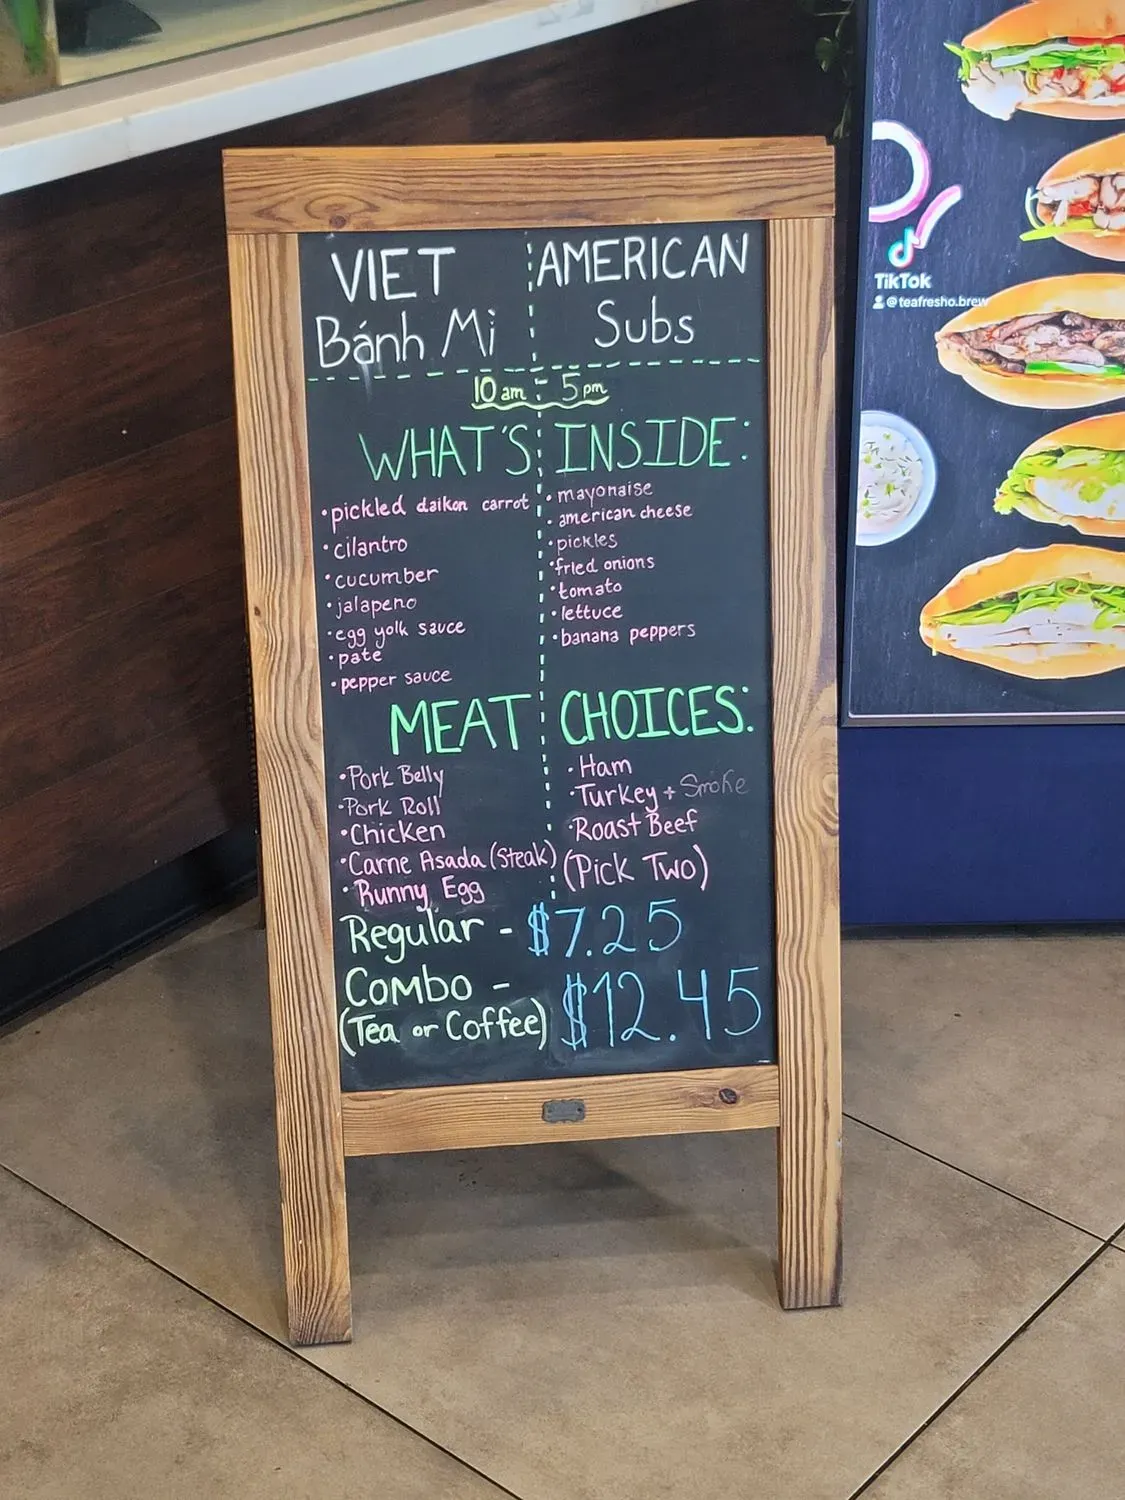 VIET
Bánh Mi
AMERICAN
Subs
10am - 5pm
WHAT'S INSIDE:
• pickled daikon carrot
• cilantro
• cucumber
• jalapeno
• egg yolk sauce
• pate
• pepper sauce
• mayonaise
• american cheese
• pickles
• fried onions
• tomato
• lettuce
• banana peppers
MEAT CHOICES:
• Pork Belly
• Pork Roll
• Chicken
• Carne Asada (Steak)
• Runny Egg
• Ham
• Turkey + Smoke
• Roast Beef
(Pick Two)
Regular - $7.25
Combo -
(Tea or Coffee) $12.45
TikTok
@teafresho.brew